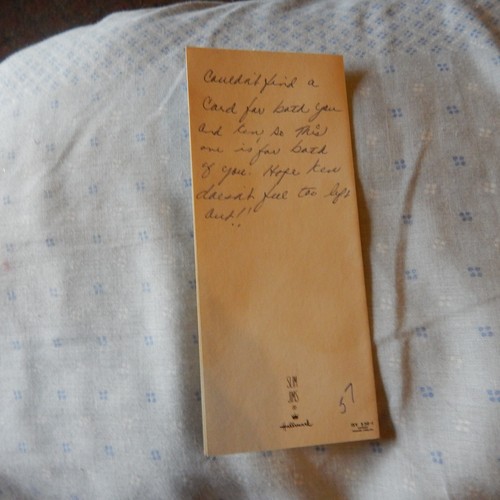 Couldn't find a
Card for both you
and Ken, so this
one is for both
of you. Hope Ken
doesn't feel too left
out!!
SLIM
JIMS
®
Hallmark
57